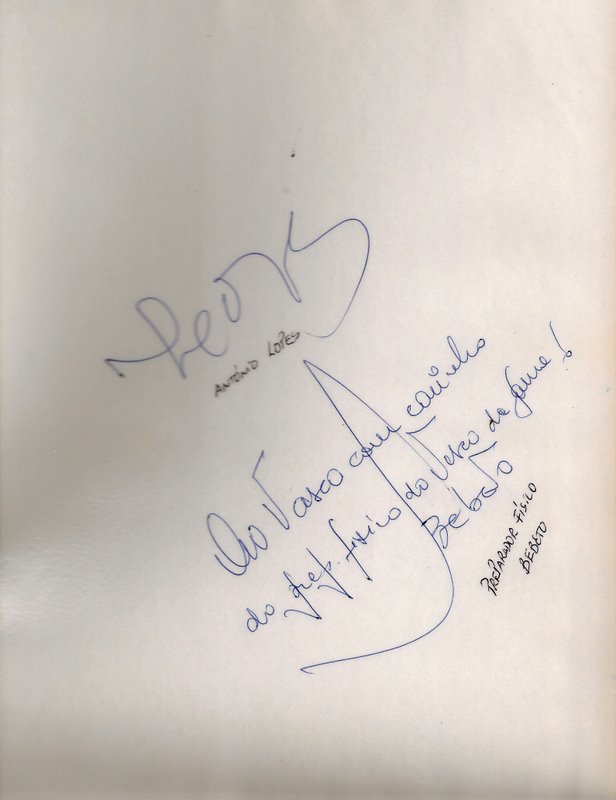 ANTÓNIO LOPES
Ao Vasco com carinho
do prep. físico do Vasco da Gama!
Bebeto
PREPARADOR FÍSICO
BEBETO